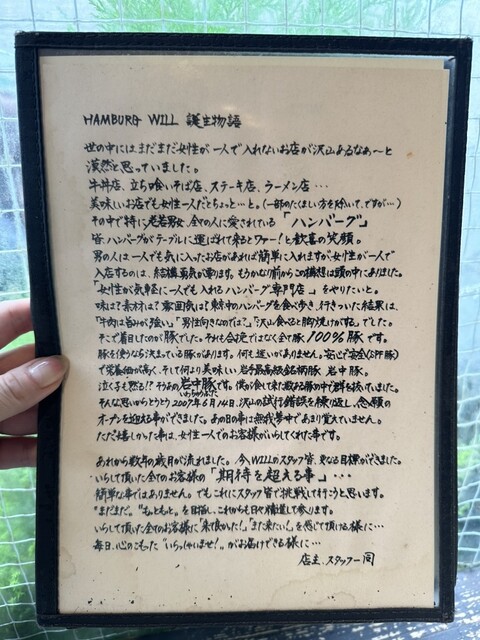 HAMBURG WILL 誕生物語
世の中にはまだまだ女性が一人で入れないお店が沢山あるなぁ〜と
漠然と思っていました。
牛丼店、立ち喰いそば店、ステーキ店、ラーメン店…
美味しいお店でも女性一人だとちょっと…と。(一部のたくましい方を除いて、ですが…)
その中で特に老若男女、全ての人に愛されている「ハンバーグ」
皆、ハンバーグがテーブルに運ばれて来るとワァー!と歓喜の笑顔。
男の人は一人でも気に入ったお店があれば簡単に入れますが女性が一人で
入店するのは、結構勇気が要ります。もうかなり前からこの構想は頭の中にありました。
「女性が気軽に一人でも入れるハンバーグ専門店」をやりたいと。
味は?素材は?雰囲気は?東京中のハンバーグを食べ歩き、行きついた結果は、
「牛肉は旨みが強い」「男性向きなのでは?」「沢山食べると胸焼けがする」でした。
そこで着目したのが豚でした。それも合挽ではなく全て豚、100%豚です。
豚を使うなら決まっている豚があります。何も迷いがありません。安心で安全(SPF豚)
で栄養価が高く、そして何より美味しい 岩手最高級銘柄豚 岩中豚。
泣く子も黙る!?そうあの岩中豚です。僕が食べて来た数ある豚の中で群を抜いていました。
いわちゅうぶた
そんな思いからとうとう2007年6月14日、沢山の試行錯誤を繰り返し、念願の
オープンを迎える事ができました。あの日の事は無我夢中であまり覚えていません。
ただ嬉しかった事は、女性一人でのお客様がいらしてくれた事です。
あれから数年の歳月が流れました。今、WILLのスタッフ皆、更なる目標ができました。
いらして頂いた全てのお客様の「期待を超える事」…
簡単な事ではありません。でもこれにスタッフ皆で挑戦して行こうと思います。
"まだまだ" "もっともっと"を目指し、これからも日々精進して参ります。
いらして頂いた全てのお客様に「来て良かった!」「また来たい!」を感じて頂ける様に…
毎日、心のこもった"いらっしゃいませ!"がお届けできる様に…
店主、スタッフ一同